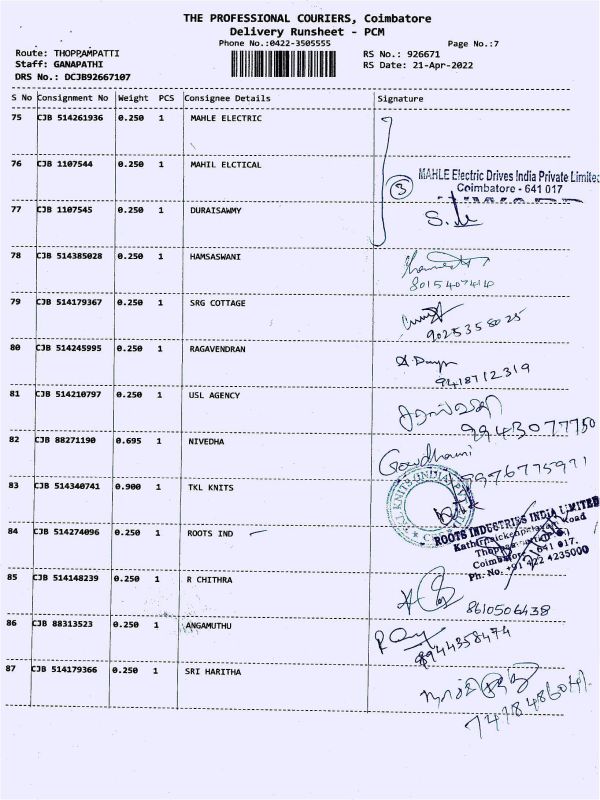 THE PROFESSIONAL COURIERS, Coimbatore
Delivery Runsheet - PCM
Phone No.:0422-3505555
Page No.:7
Route: THOPPAMPATTI
RS No.: 926671
Staff: GANAPATHI
RS Date: 21-Apr-2022
DRS No.: DCJB92667107
S No Consignment No Weight PCS Consignee Details Signature
75 CJB 514261936 0.250 1 MAHLE ELECTRIC
76 CJB 1107544 0.250 1 MAHIL ELCTICAL
3 MAHLE Electric Drives India Private Limited
Coimbatore - 641 017
77 CJB 1107545 0.250 1 DURAISAWMY
78 CJB 514385028 0.250 1 HAMSASWANI
79 CJB 514179367 0.250 1 SRG COTTAGE
9025358025
80 CJB 514245995 0.250 1 RAGAVENDRAN
9418712319
81 CJB 514210797 0.250 1 USL AGENCY
9943077750
82 CJB 88271190 0.695 1 NIVEDHA
Gowdhami
9976775971
83 CJB 514340741 0.900 1 TKL KNITS
84 CJB 514274096 0.250 1 ROOTS IND
ROOTS INDUSTRIES INDIA LIMITED
Road
Coimbatore - 641 017.
Ph. No. +91 422 4235000
85 CJB 514148239 0.250 1 R CHITHRA
8610506438
86 CJB 88313523 0.250 1 ANGAMUTHU
8944358474
87 CJB 514179366 0.250 1 SRI HARITHA